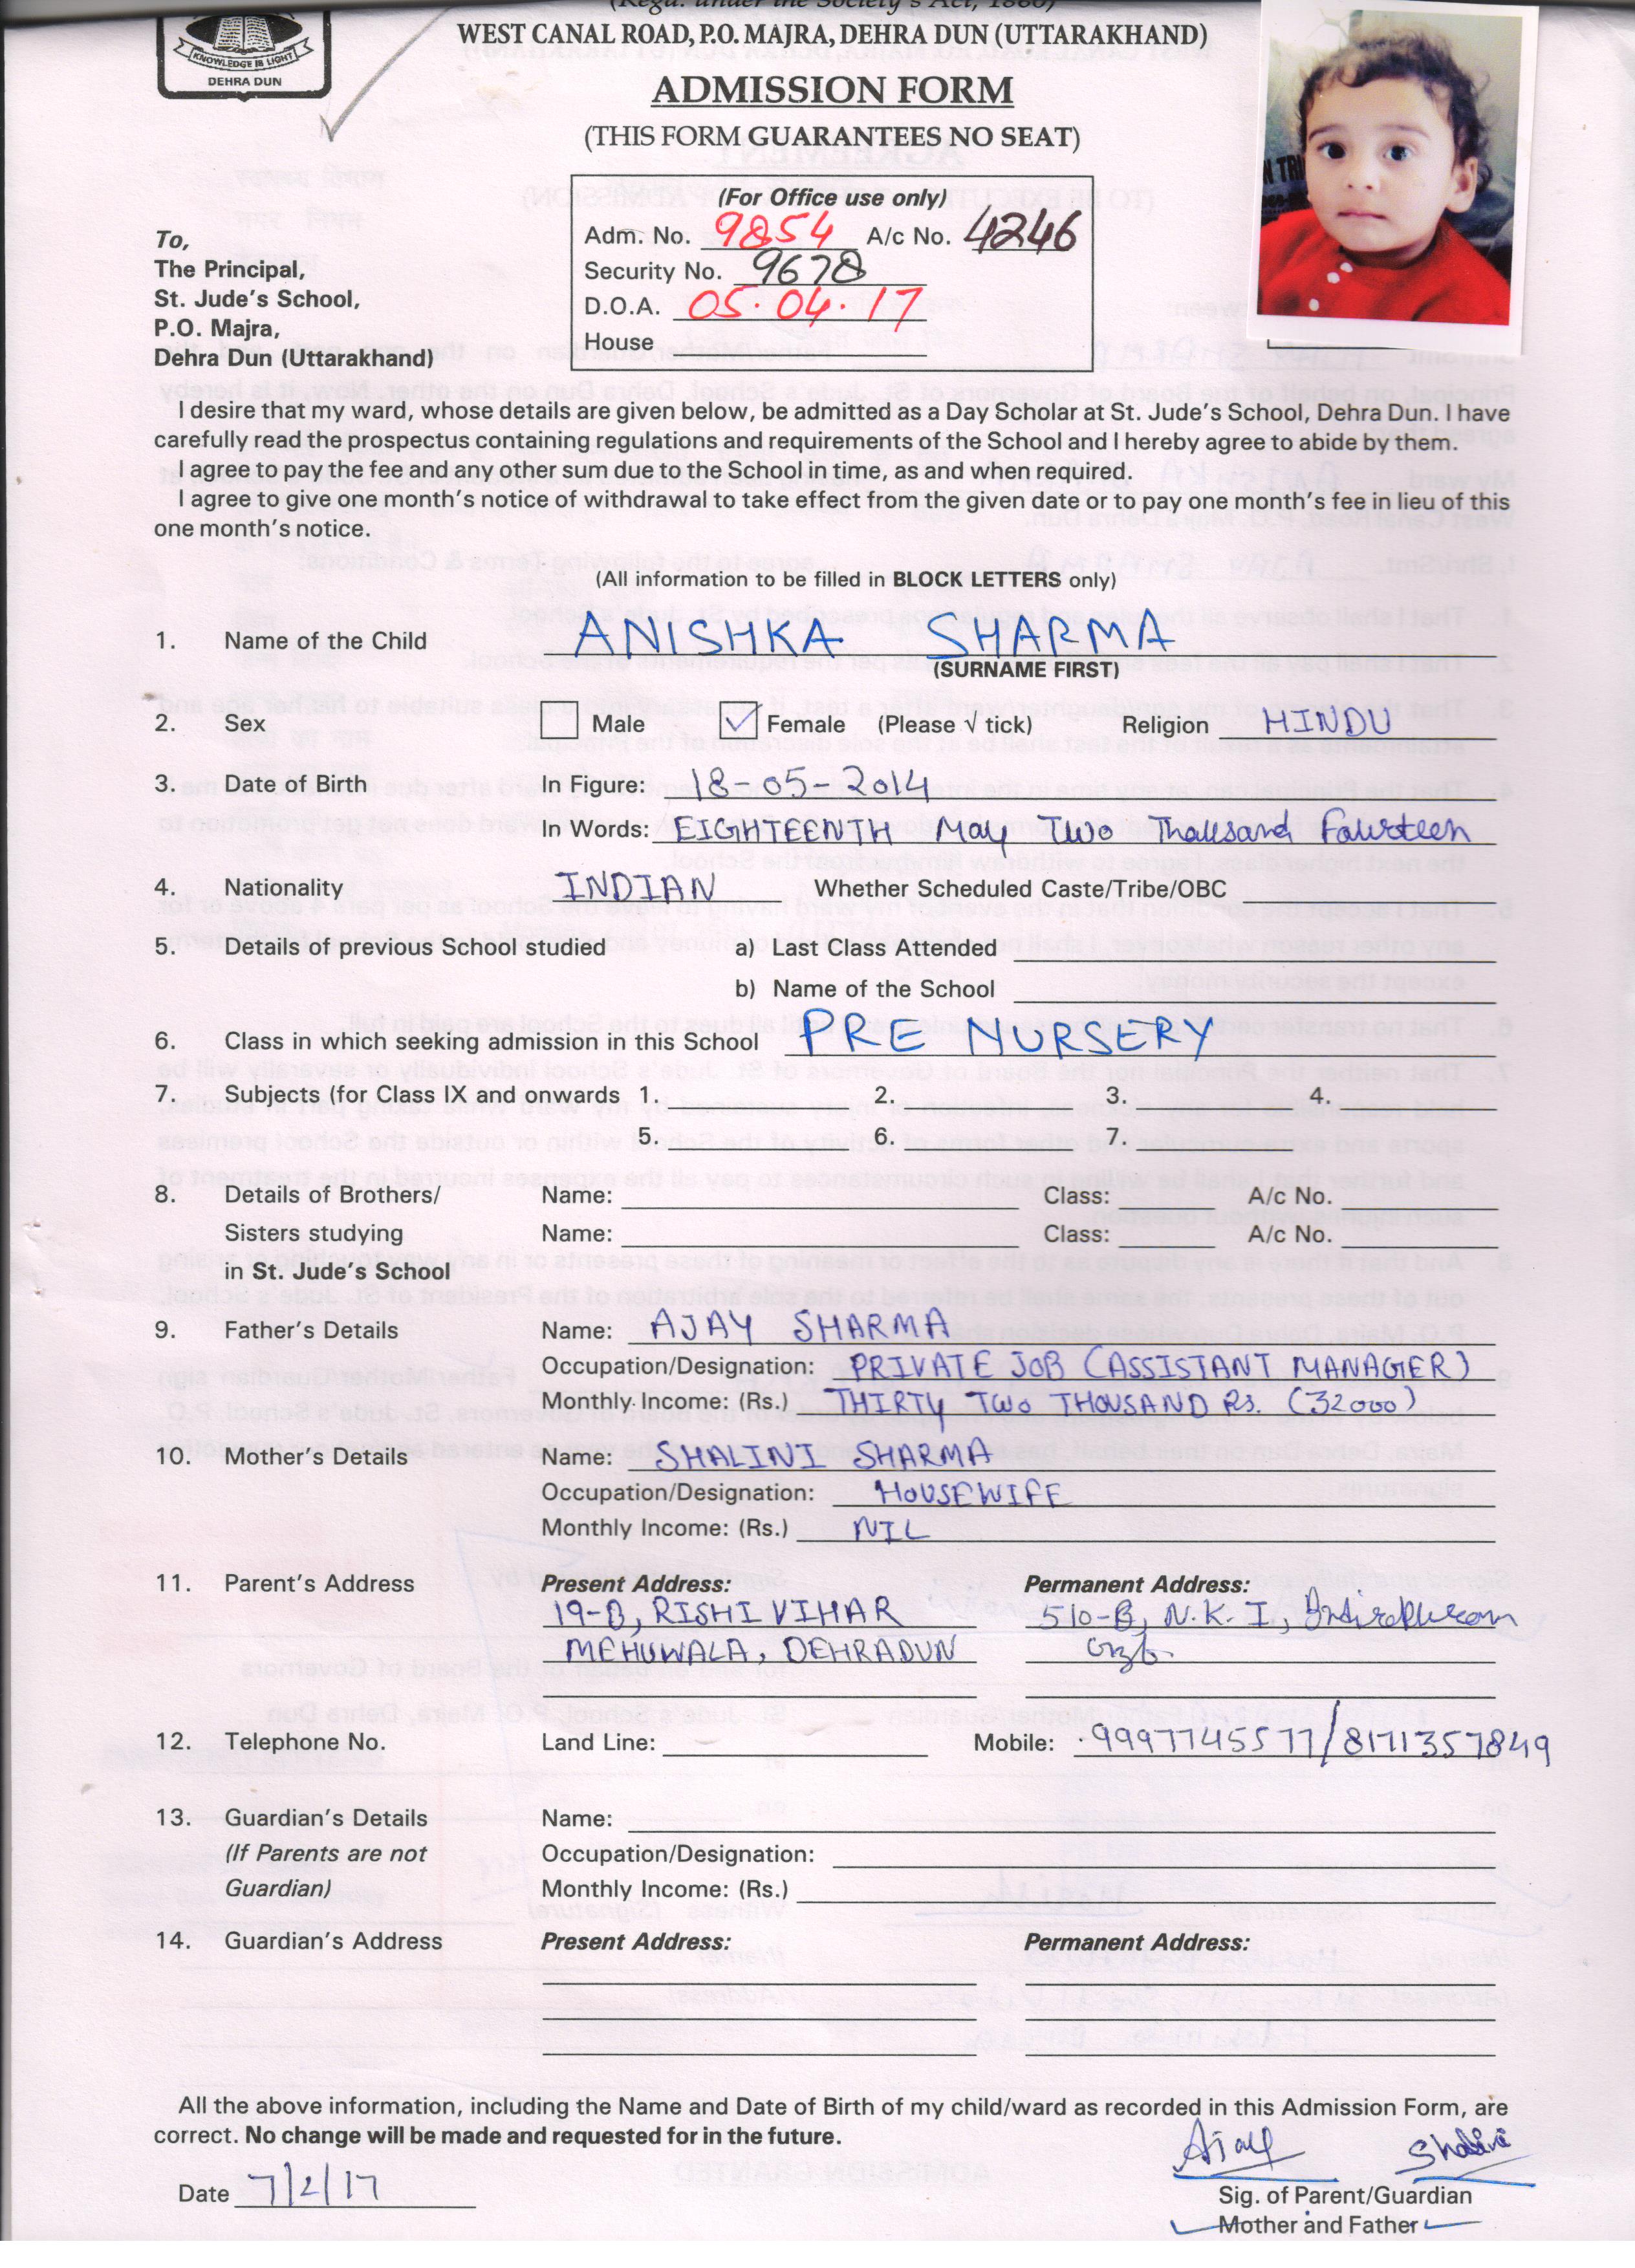 (Regd. under the Society's Act, 1860)
WEST CANAL ROAD, P.O. MAJRA, DEHRA DUN (UTTARAKHAND)
KNOWLEDGE IS LIGHT
DEHRA DUN
ADMISSION FORM
(THIS FORM GUARANTEES NO SEAT)
(For Office use only)
Adm. No. 9854 A/c No. 4246
Security No. 9678
D.O.A. 05.04.17
House
To,
The Principal,
St. Jude's School,
P.O. Majra,
Dehra Dun (Uttarakhand)
I desire that my ward, whose details are given below, be admitted as a Day Scholar at St. Jude's School, Dehra Dun. I have
carefully read the prospectus containing regulations and requirements of the School and I hereby agree to abide by them.
I agree to pay the fee and any other sum due to the School in time, as and when required.
I agree to give one month's notice of withdrawal to take effect from the given date or to pay one month's fee in lieu of this
one month's notice.
(All information to be filled in BLOCK LETTERS only)
1. Name of the Child ANISHKA SHARMA
(SURNAME FIRST)
2. Sex Male ✓ Female (Please √ tick) Religion HINDU
3. Date of Birth In Figure: 18-05-2014
In Words: EIGHTEENTH May Two Thousand Fourteen
4. Nationality INDIAN Whether Scheduled Caste/Tribe/OBC
5. Details of previous School studied a) Last Class Attended
b) Name of the School
6. Class in which seeking admission in this School PRE NURSERY
7. Subjects (for Class IX and onwards 1. 2. 3. 4.
5. 6. 7.
8. Details of Brothers/ Name: Class: A/c No.
Sisters studying Name: Class: A/c No.
in St. Jude's School
9. Father's Details Name: AJAY SHARMA
Occupation/Designation: PRIVATE JOB (ASSISTANT MANAGER)
Monthly Income: (Rs.) THIRTY TWO THOUSAND Rs. (32000)
10. Mother's Details Name: SHALINI SHARMA
Occupation/Designation: HOUSEWIFE
Monthly Income: (Rs.) NIL
11. Parent's Address Present Address: Permanent Address:
19-B, RISHI VIHAR 510-B, N.K.I, Indirapuram
MEHUWALA, DEHRADUN Gzb
12. Telephone No. Land Line: Mobile: 9997745577/8171357849
13. Guardian's Details Name:
(If Parents are not Occupation/Designation:
Guardian) Monthly Income: (Rs.)
14. Guardian's Address Present Address: Permanent Address:
All the above information, including the Name and Date of Birth of my child/ward as recorded in this Admission Form, are
correct. No change will be made and requested for in the future.
Ajay Shalini
Date 7/2/17
Sig. of Parent/Guardian
Mother and Father